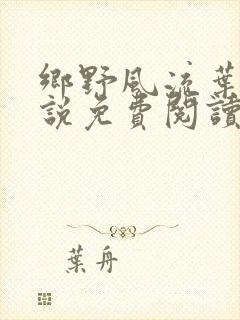 鄉野風流葉
說免費閱讀
葉舟